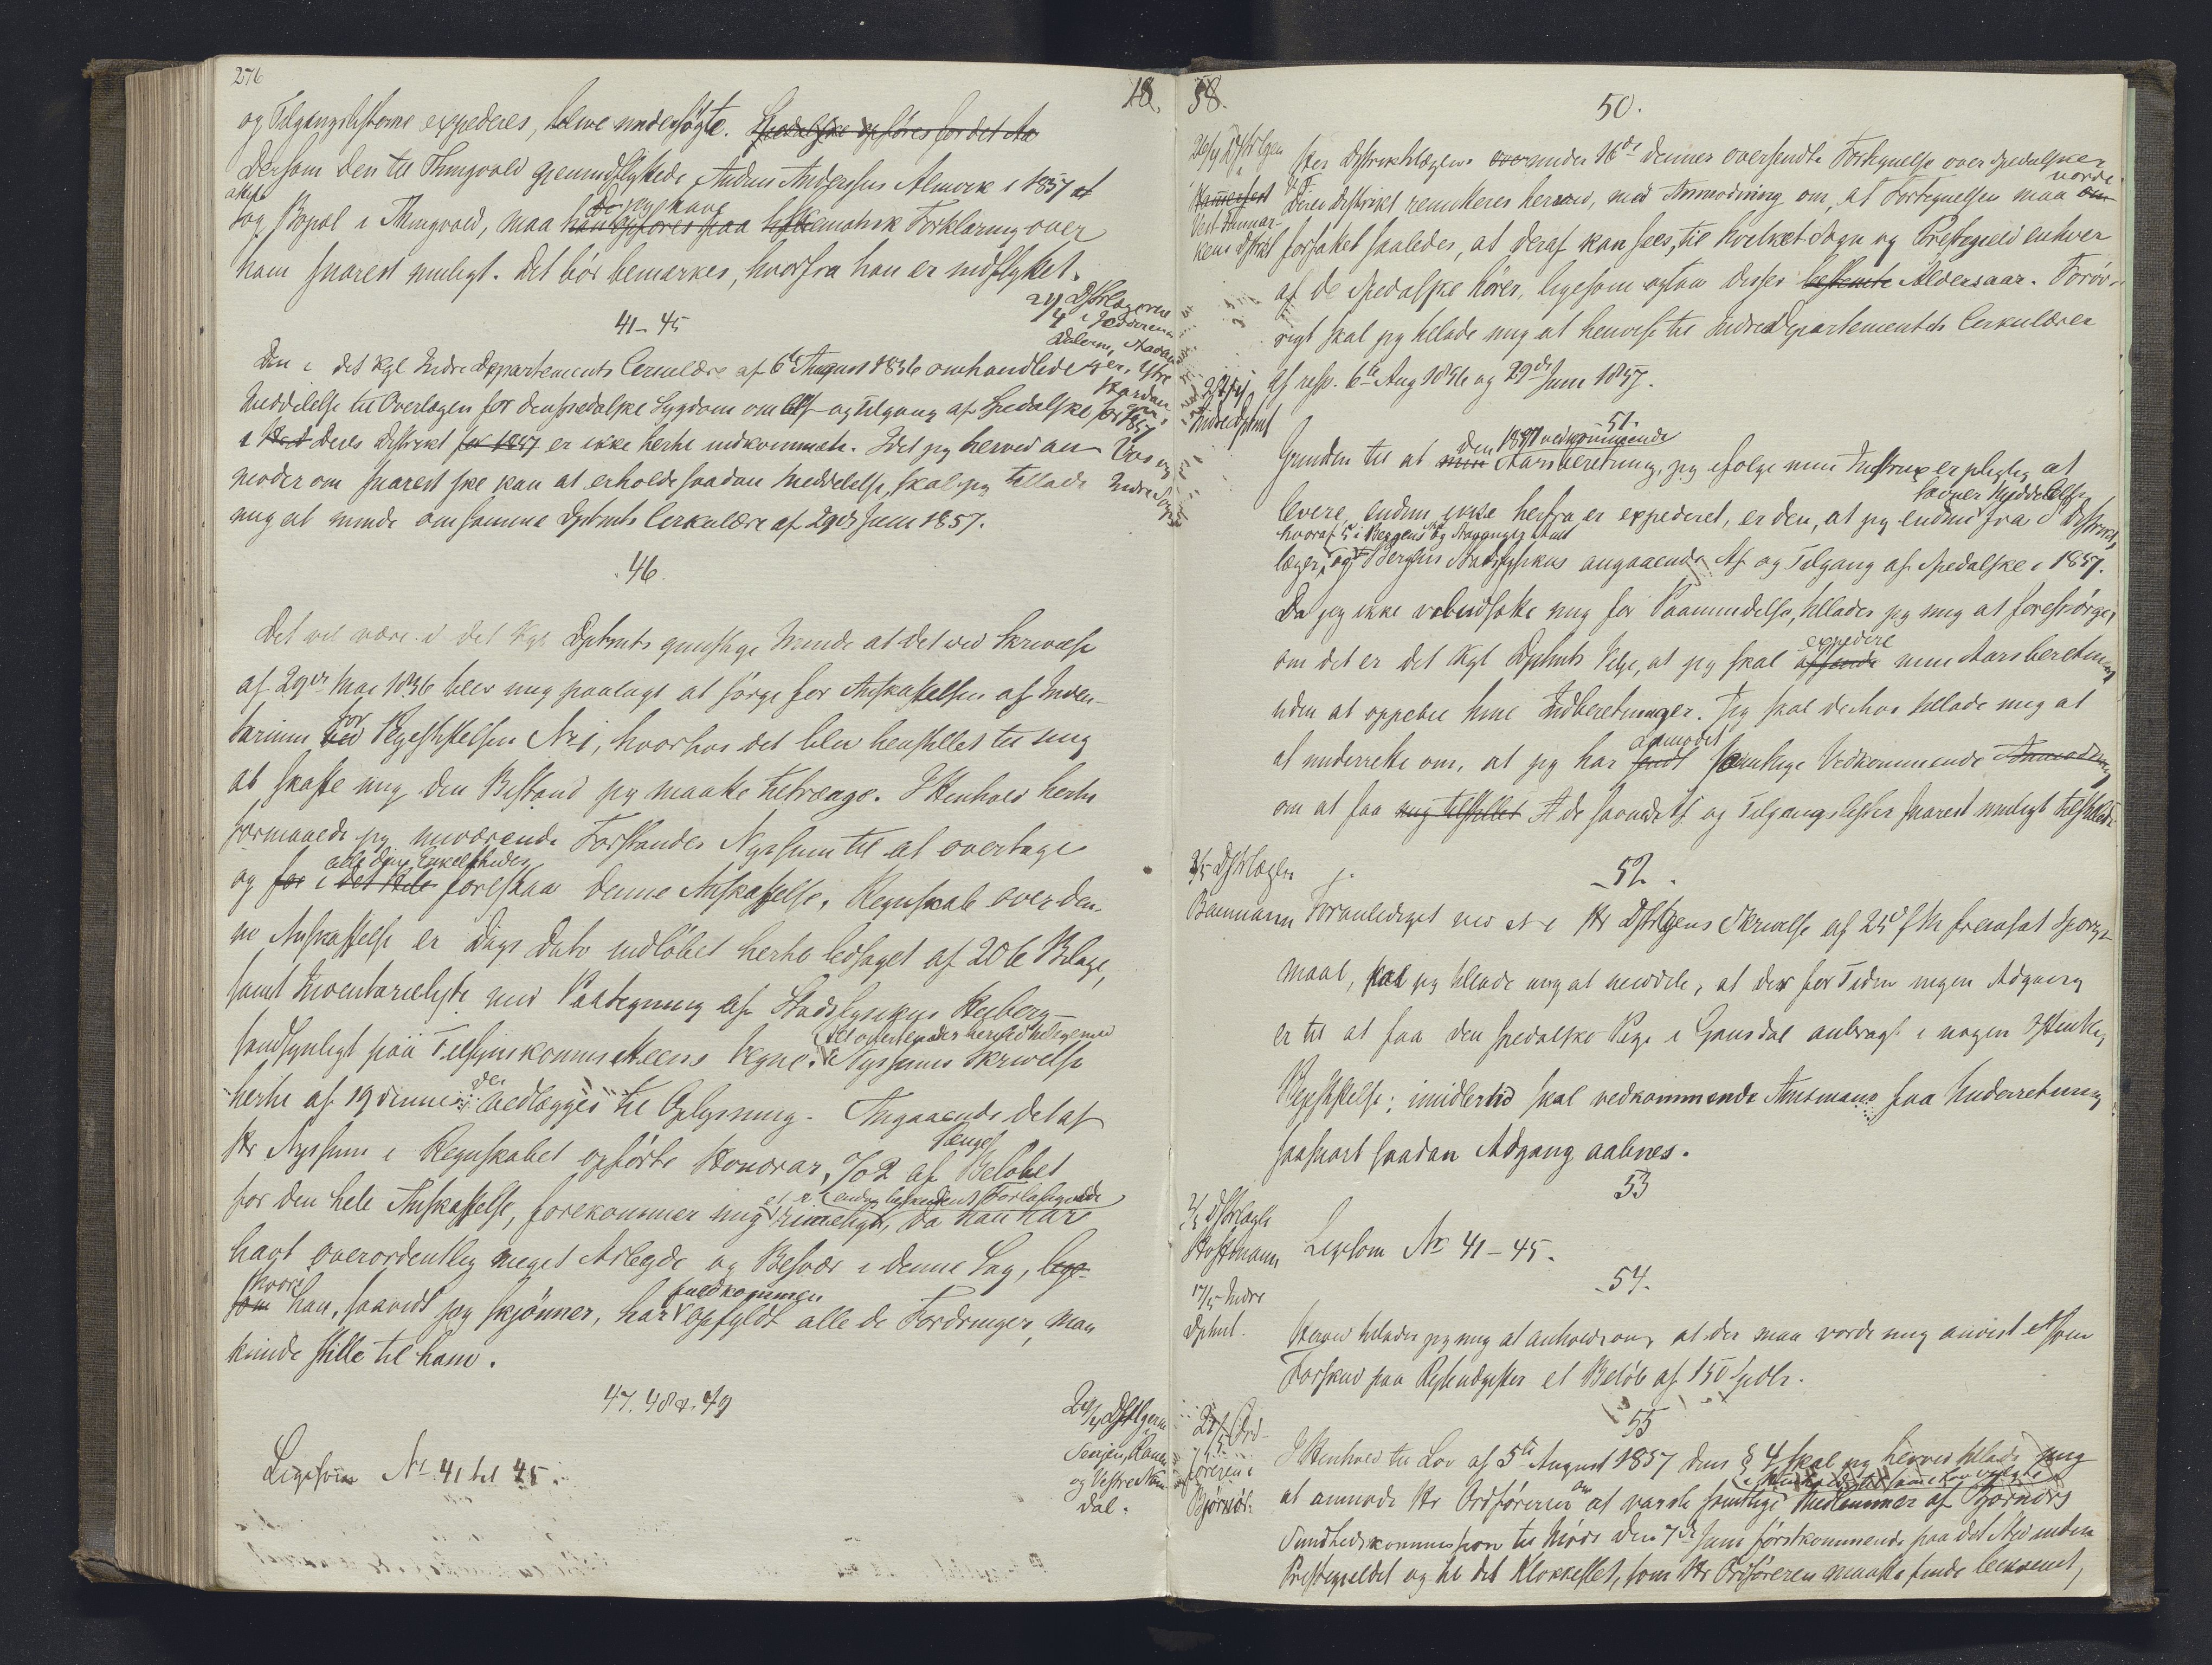 276
18
og Tilgangslisterne expederes, blive undersøgte. Spedalske opføres for det Aa
Dersom den til Thingvold gjenindflyttede Anders Anderssen Almerk i 1857 at
atter
tog Bopæl i Thingvold, maa han opføres paa Forklaring over
jeg have
ham snarest muligt. Det bør bemærkes, hvorfra han er indflyttet.
41-45
Den i det Kgl Indre Departements Cirkulære af 6te August 1856 omhandlede
Meddelelse til Overlægen for den spedalske Sygdom om Af- og Tilgang af Spedalske for 1857
i Deres Distrikt for 1857 er ikke hertil indkommet. Idet jeg herved an-
moder om snarest ske kan at erholde saadan Meddelelse, skal jeg tillade
mig at minde om samme Dptmts Cirkulære af 29de Juni 1857.
46.
Det vil være i det Kgl. Dptmts gunstige Minde at det ved Skrivelse
af 29de Mai 1856 blev mig paalagt at sørge for Anskaffelsen af Inven-
tarium ved Plejestiftelsen No 1, hvorhos det blev henstillet til mig
for
at skaffe mig den Bistand jeg maatte tiltrænge. I Henhold hertil
formaaede jeg nuværende Forstander Nyssum til at overtage
alle dens Enkeltheder
og for i det Hele forestaa denne Anskaffelse. Regnskab over den-
ne Anskaffelse er Dags Dato indløbet hertil ledsaget af 206 Bilage,
samt Inventarieliste med Paategning af Stadsfysikus Heiberg
sandsynligt paa Tilsynskommitteens Vegne. Nyssums Skrivelse
hertil af 19 dennes vedlægges til Oplysning. Angaaende det af
Hr Nyssum i Regnskabet opførte Honorar, % 2 af Beløbet
for den hele Anskaffelse, forekommer mig rimeligt, da han har
havt overordentlig meget Arbejde og Besvær i denne Sag,
hvori
som han, saavidt jeg skjønner, har opfyldt alle de Fordringer, man
fuldkommen
kunde stille til ham.
47. 48 & 49
Ligesom No 41 til 45.
Dstlægerne
Senjen, Ranen
og Vestre Nam
dal.
58.
50.
26/4 Dstrlgen
i
Hammerfest
Vest-Finmar-
kens Dstrkt
Hr Distriktslægens under 16de dennes oversendte Fortegnelse over Spedalske
i Deres Distrikt remitteres herved, med Anmodning om, at Fortegnelsen maa
vorde
forfattet saaledes, at deraf kan sees, til hvilket Sogn og Præstegjeld enhver
af de Spedalske hører, ligesom ogsaa disses bestemte Aldersaar. Forøv-
rigt skal jeg tillade mig at henvise til Indredepartementets Cirkulærer
af resp. 6te Aug 1856 og 29de Juni 1857.
51.
Indredptmt
Grunden til at min Aarsberetning, jeg ifølge min Instrux er pligtig at
den 1857 vedkommende
levere, endnu ikke herfra er expederet, er den, at jeg endnu fra Distrikts-
savner Meddelelse
læger, og Bergens Stadsfysikus angaaende Af og Tilgang af Spedalske i 1857.
hvoraf 5 i Bergens og Stavanger Amt
Da jeg ikke vil udsætte mig for Paamindelse, tillader jeg mig at forespørge,
om det er det Kgl Dptmts Vilje, at jeg skal afsende min Aarsberetning
expedere
uden at oppebie hine Indberetninger. Jeg skal derhos tillade mig at
at underrette om, at jeg har sendt samtlige Vedkommende Anmodning
anmodet
om at faa mig tilstillet de savnede Af og Tilgangslister snarest muligt tilstillede
52.
3/5 Dstrlægen
Baumann
Foranlediget ved et i Hr Dstrlgens Skrivelse af 25de f M fremsat Spørgs-
maal, skal jeg tillade mig at meddele, at der for Tiden ingen Adgang
er til at faa den spedalske Pige i Gausdal anbragt i nogen Offentlig
Plejestiftelse; imidlertid skal vedkommende Amtmand faa Underretning
saasnart saadan Adgang aabnes.
53
Dstrlægen
Hoffmann
Ligesom No 41-45.
54.
17/5 Indre
Dptmt.
Herved tillader jeg mig at anholde om, at der maa vorde mig anvist som
Forskud paa Rejseudgifter et Beløb af 150 Spdlr.
55
21/5 Ord-
føreren i
Bjørnør
I Henhold til Lov af 5te August 1857 dens § 4 skal jeg herved tillade mig
at anmode Hr Ordføreren om at varsle samtlige Medlemmer af Bjørnørs
Sundhedskommission til Møde den 7de Juni førstkommende paa det Sted inden
Præstegjeldet og til det Klokkeslet, som Hr Ordføreren maatte finde bekvemt,